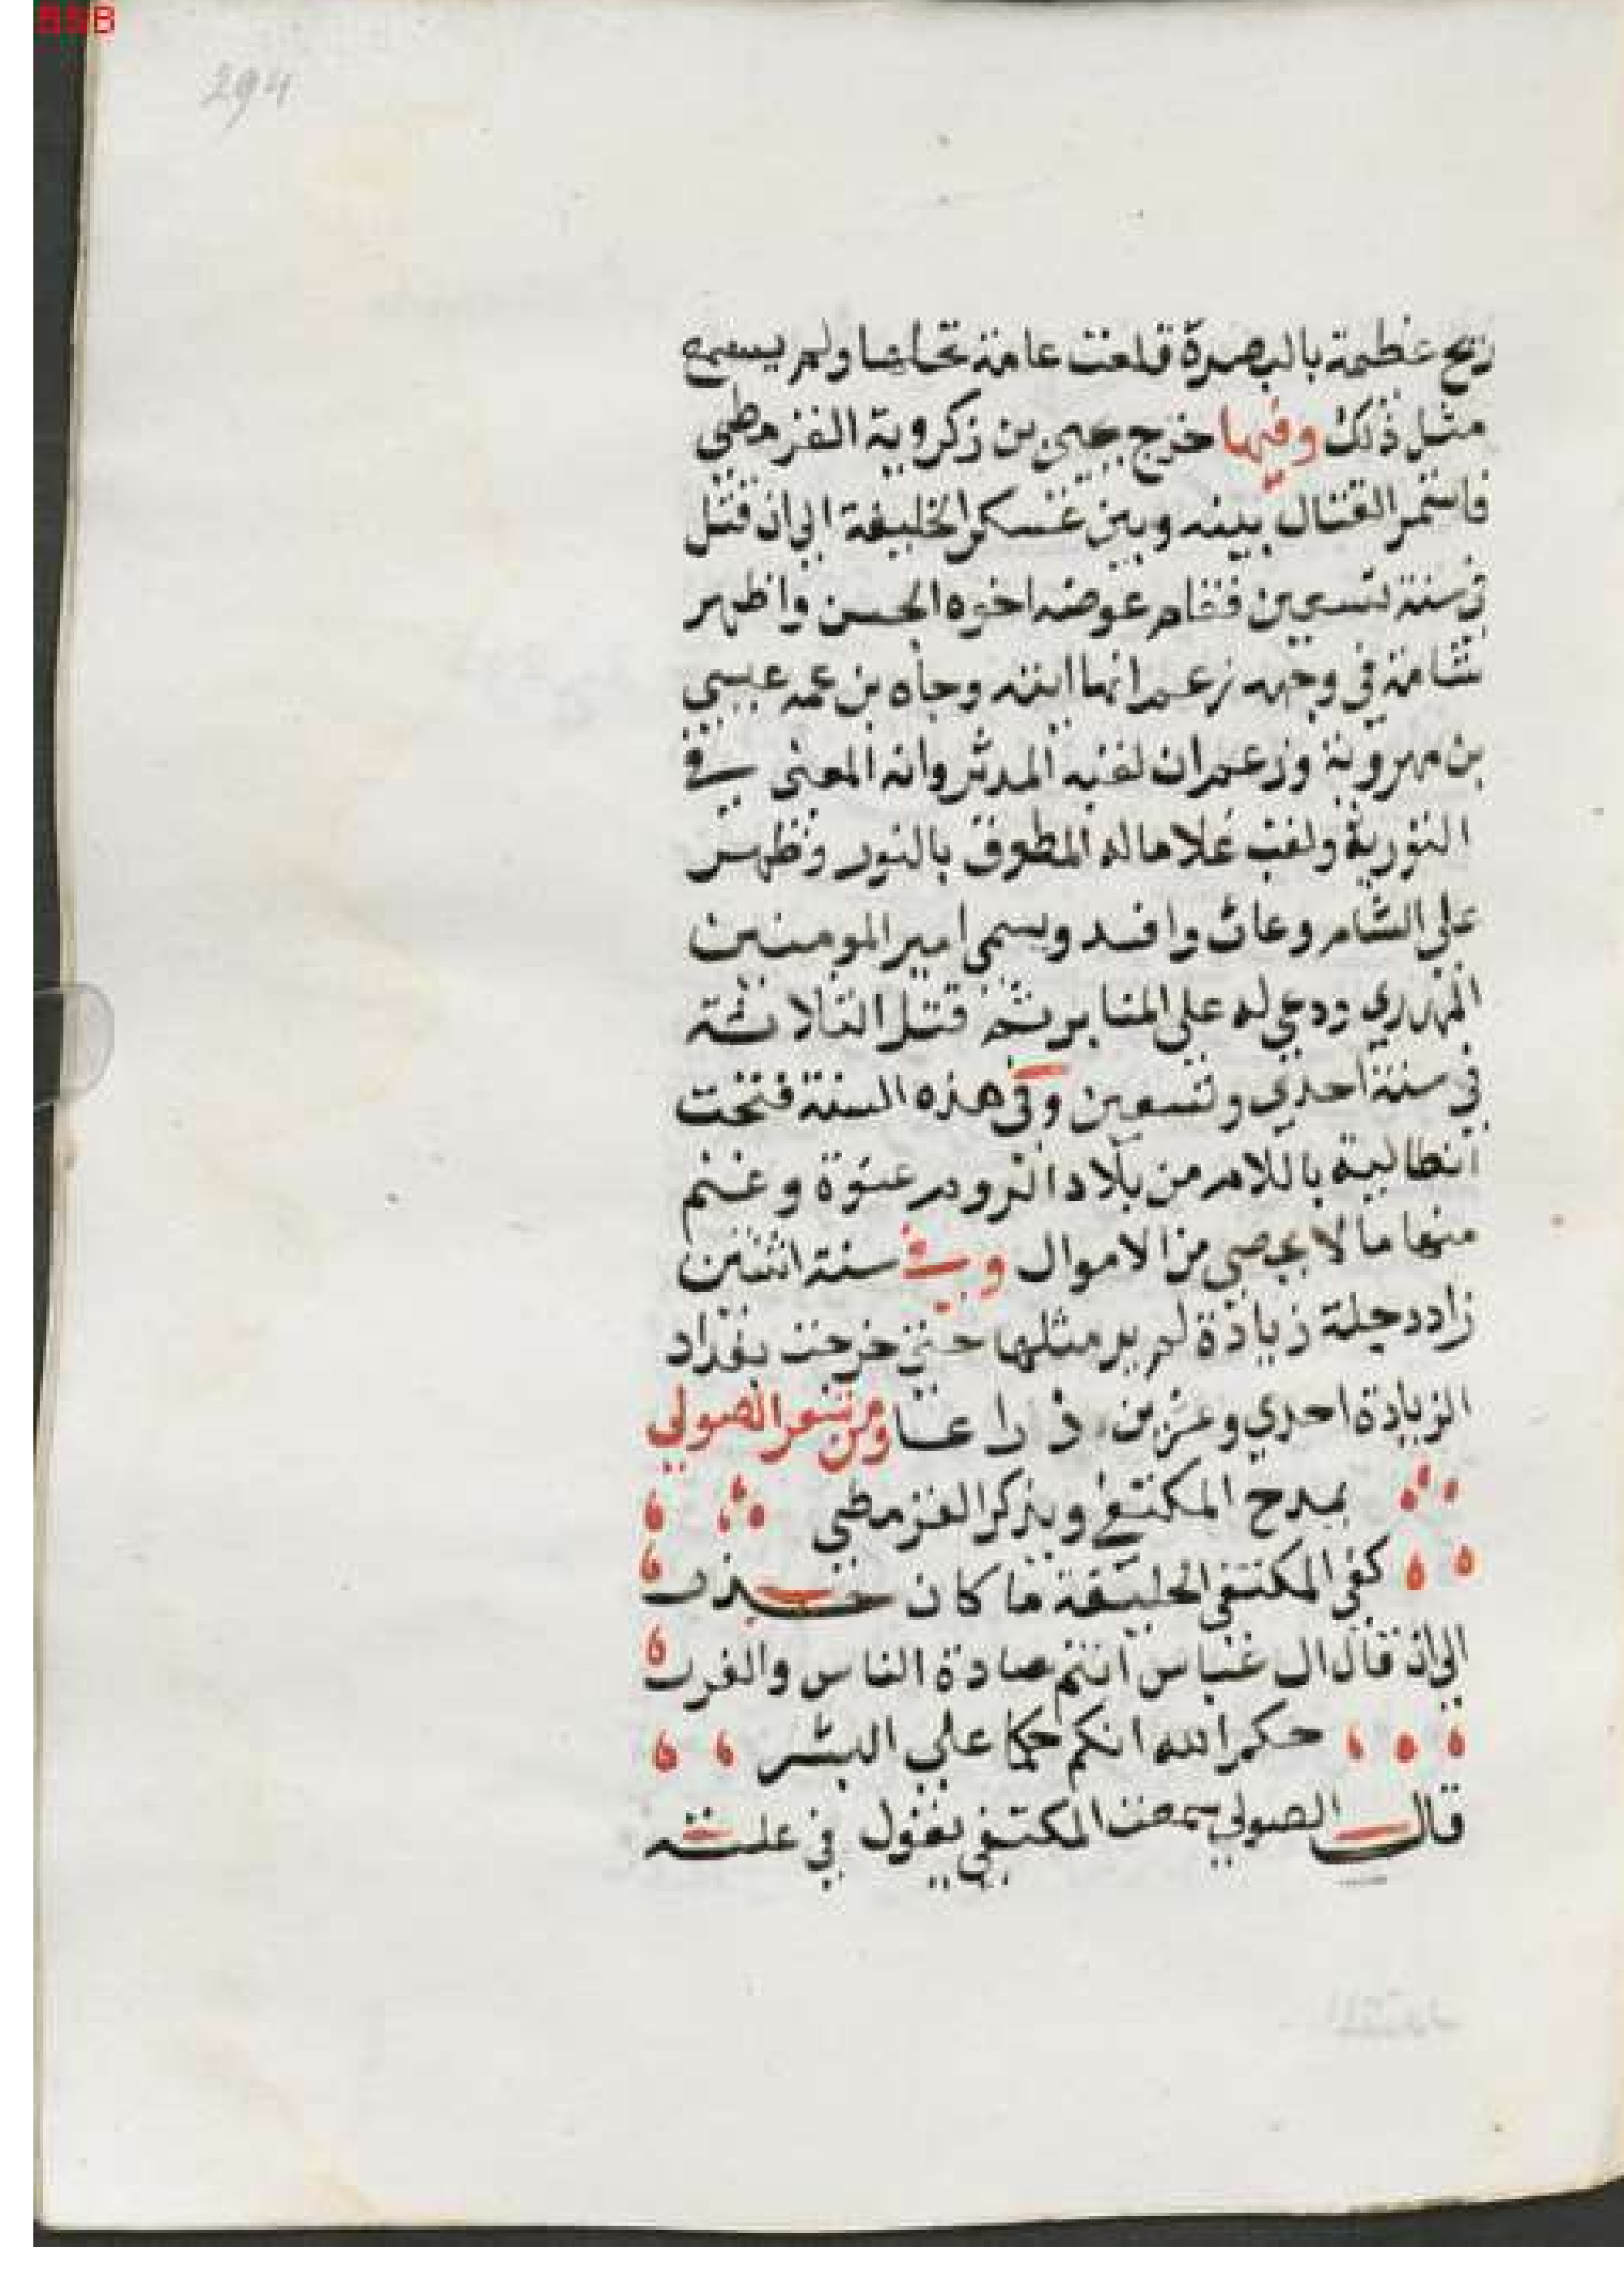 BSB
294
ريح عظيمة بالبصرة قلعت عامة نخلها ولم يسمع
مثل ذلك وفيها خرج يحيى بن زكروية القرمطي
فاستمر القتال بينه وبين عسكر الخليفة الي ان قتل
في سنة تسعين فقام عوضه اخوه الحسن واظهر
شامة في وجهه زعم انها ايته وجاه بن عمه عيسي
بن مهروية وزعم ان لقبه المدثر وانه المعني في
السورية ولقب غلاما له المطوق بالنور وظهر
علي الشام وعاث وافسد ويسمي امير المومنين
المهدي ودعي له علي المنابر ثم قتل الثلاثة
في سنة احدي وتسعين وفي هذه السنة فتحت
انطالية باللام من بلاد الروم عنوة وغنم
منها ما لا يحصي من الاموال وفي سنة اثنتين
زاد دجلة زيادة لم ير مثلها حتي خرجت بغداد
الزيادة احدي وعشرين ذراعا ومن شعر الصولي
يمدح المكتفي ويذكر القرمطي
كفي المكتفي الخليفة ما كان حذر
الي ان قال ال عباس انتم سادة الناس والغرر
حكم الله انكم حكما علي البشر
قال الصولي سمعت المكتفي يقول في علته